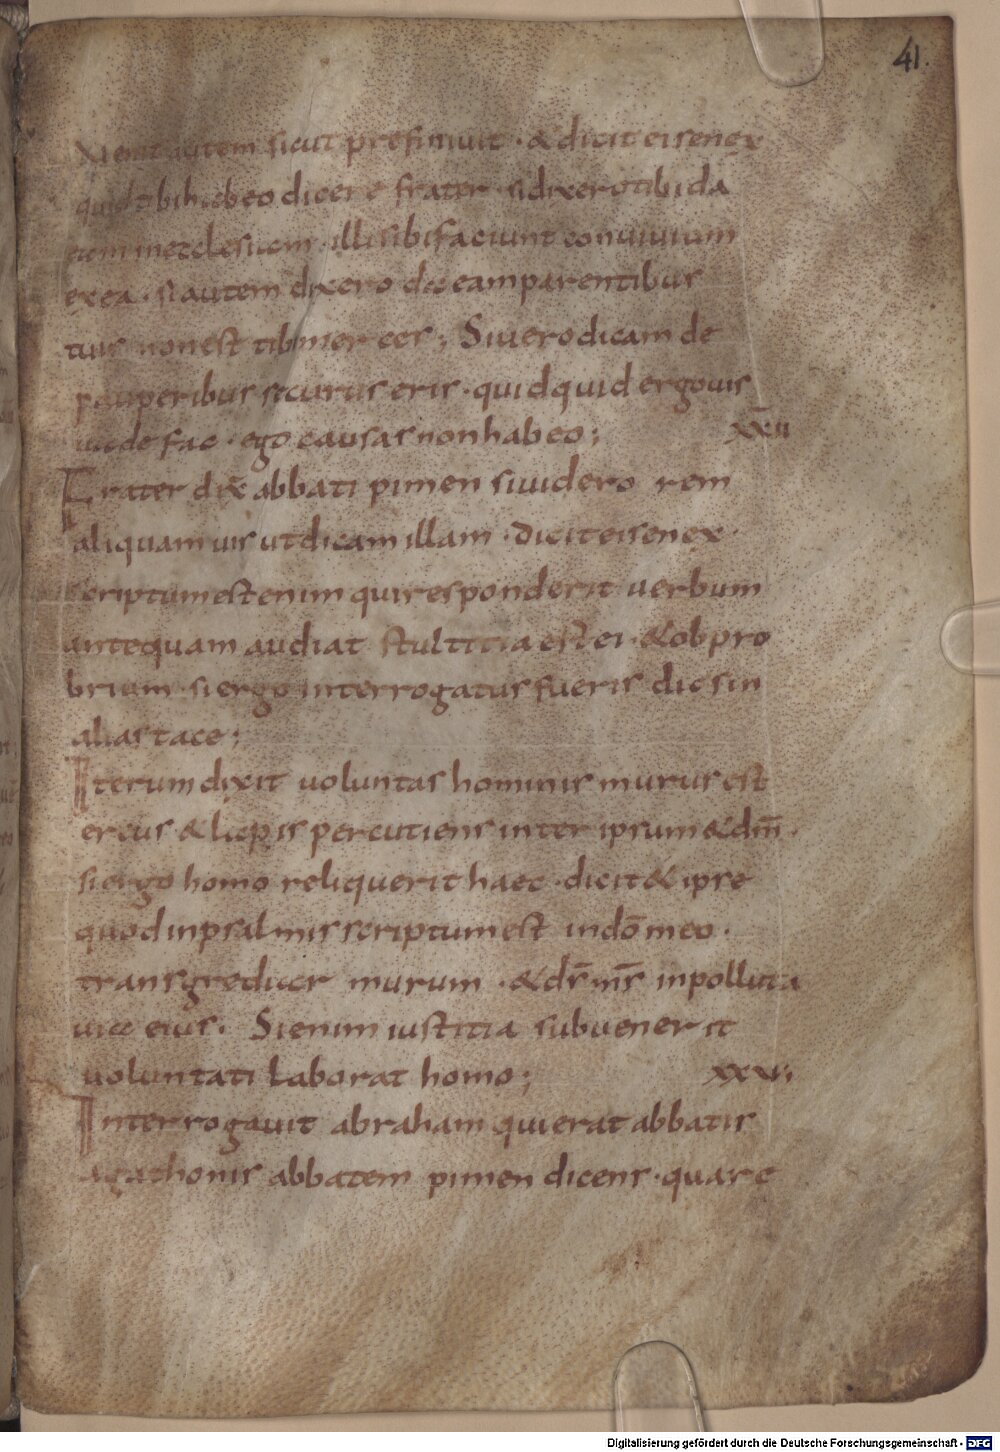 41.
Venit autem sicut prefinivit · & dicit ei senex
quid tibi habeo dicere frater · si dixero tibi da
eam in ecclesiam · illi sibi faciunt convivium
ex ea · si autem dixero da eam parentibus
tuis non est tibi merces ; Si vero dicam da
pauperibus securus eris · quidquid ergo vis
vade fac · ego causas non habeo ;
Frater dix̄ abbati pimen si videro rem
aliquam vis ut dicam illam · dicit ei senex ·
scriptum est enim qui responderit verbum
antequam audiat stultitia est ei · & obpro
brium · si ergo interrogatus fueris dic sin
alias tace ;
Iterum dixit voluntas hominis murus est
ereus & lapis percutiens inter ipsum & dm̄ ·
si ergo homo reliquerit haec · dicit & ipse
quod in psalmis scriptum est in dō meo ·
transgrediar murum · & ds̄ ms̄ inpolluta
via eius · Si enim iustitia subvenerit
voluntati laborat homo ; xxv;
Interrogavit abraham qui erat abbatis
agathonis abbatem pimen dicens · quare
Digitalisierung gefördert durch die Deutsche Forschungsgemeinschaft - DFG